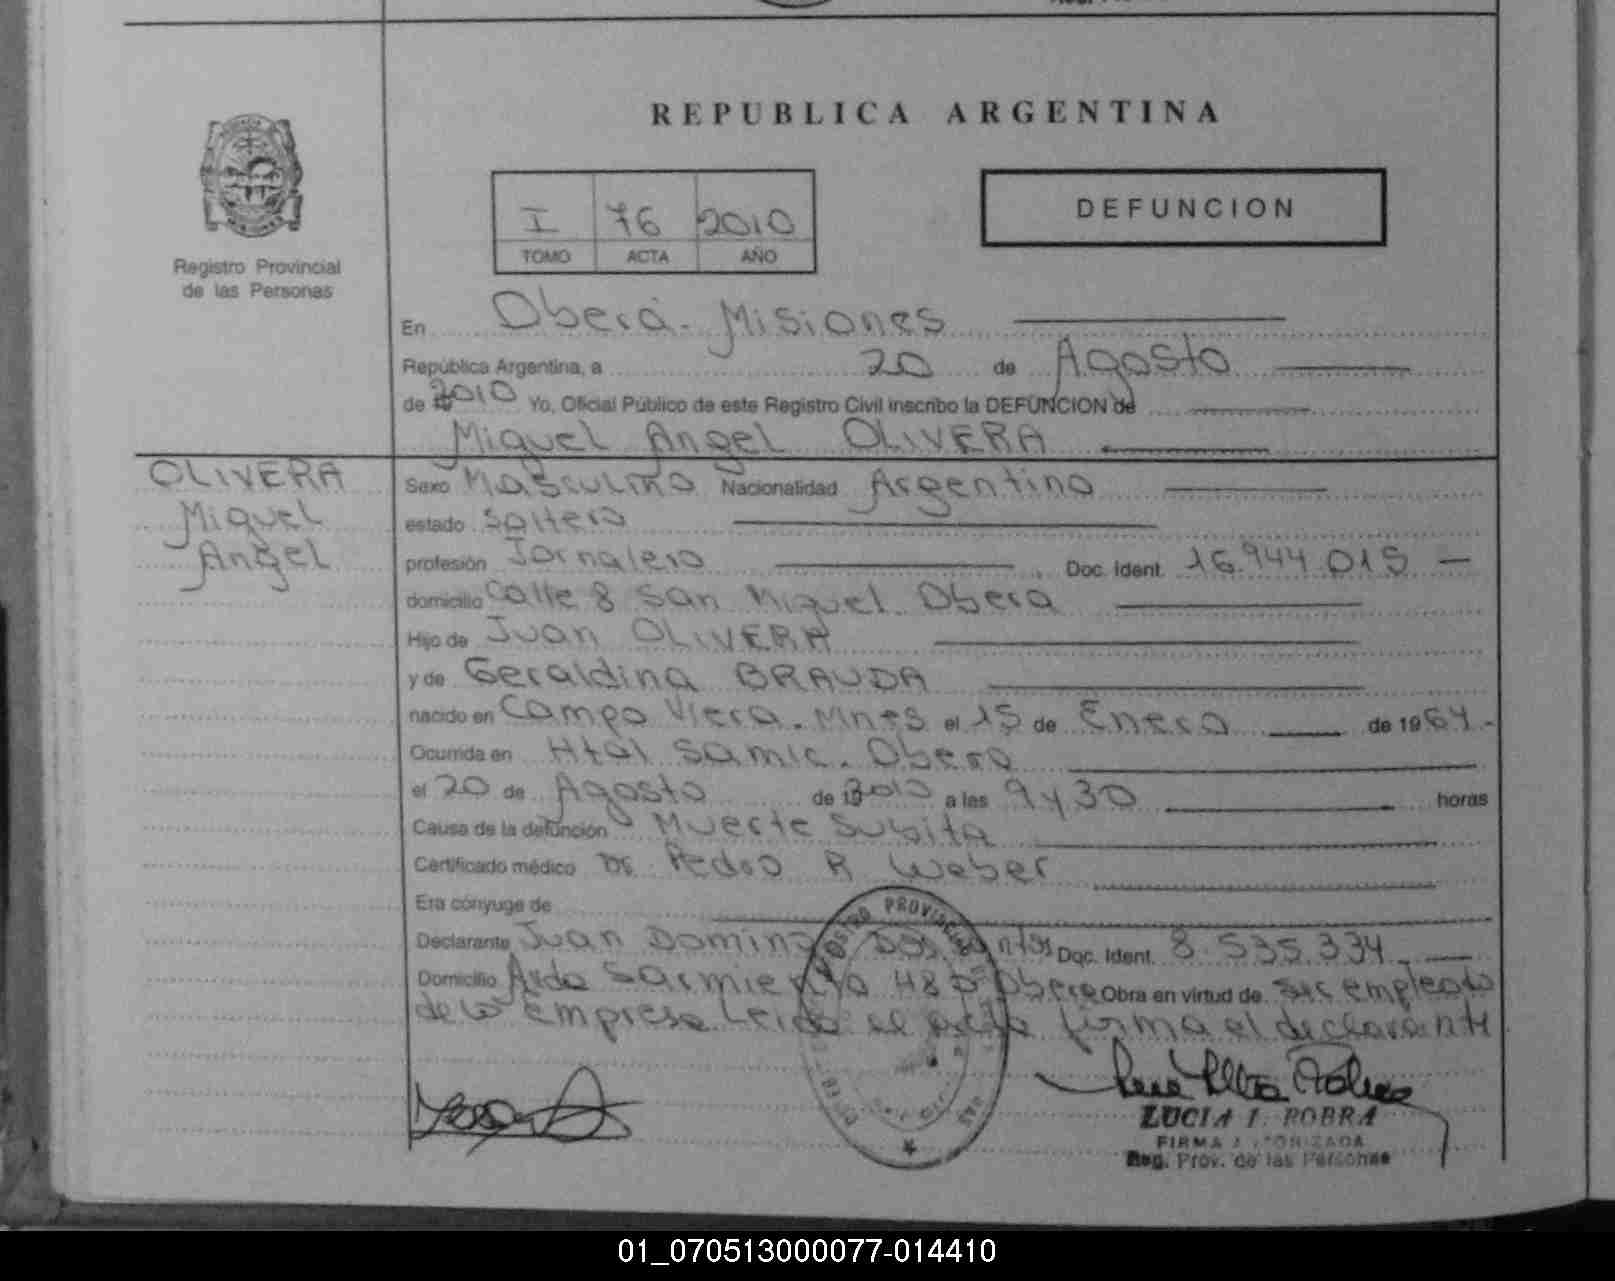 REPUBLICA ARGENTINA
I 76 2010
TOMO ACTA AÑO
DEFUNCION
Registro Provincial
de las Personas
En Oberá - Misiones
República Argentina, a 20 de Agosto
de 2010 Yo, Oficial Público de este Registro Civil inscribo la DEFUNCION de
Miguel Angel OLIVERA
OLIVERA
Miguel
Angel
Sexo Masculino Nacionalidad Argentino
estado Soltero
profesión Jornalero Doc. Ident. 16.944.015 -
domicilio Calle 8 San Miguel Obera
Hijo de Juan OLIVERA
y de Geraldina BRAUDA
nacido en Campo Viera. Mnes el 15 de Enero de 1964.-
Ocurrida en Htal Samic. Obera
el 20 de Agosto de 2010 a las 9 y 30 horas
Causa de la defunción Muerte Subita
Certificado médico Dr. Pedro R Weber
Era cónyuge de
Declarante Juan Domingo Dos Santos Doc. Ident. 8.535.334.-
Domicilio Avda Sarmiento Obera Obra en virtud de ser empleado
de la empresa. Leida el acta firma el declarante
REGISTRO PROVINCIAL
LUCIA I. ROBRA
FIRMA AUTORIZADA
Reg. Prov. de las Personas
01_070513000077-014410